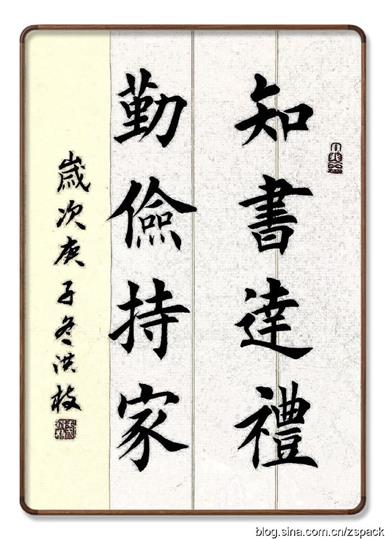 知書達禮
勤儉持家
歲次庚子冬洪枝
blog.sina.com.cn/zspack